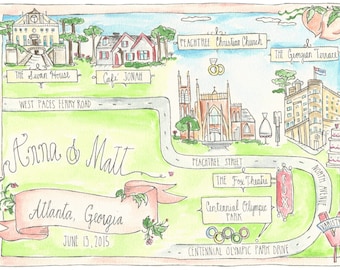 PEACHTREE Christian Church
THE Georgian Terrace
THE Swan House
Café JONAH
WEST PACES FERRY ROAD
Anna & Matt
PEACHTREE STREET
THE Fox Theatre
Centennial Olympic
PARK
Atlanta, Georgia
JUNE 13, 2015
CENTENNIAL OLYMPIC PARK DRIVE